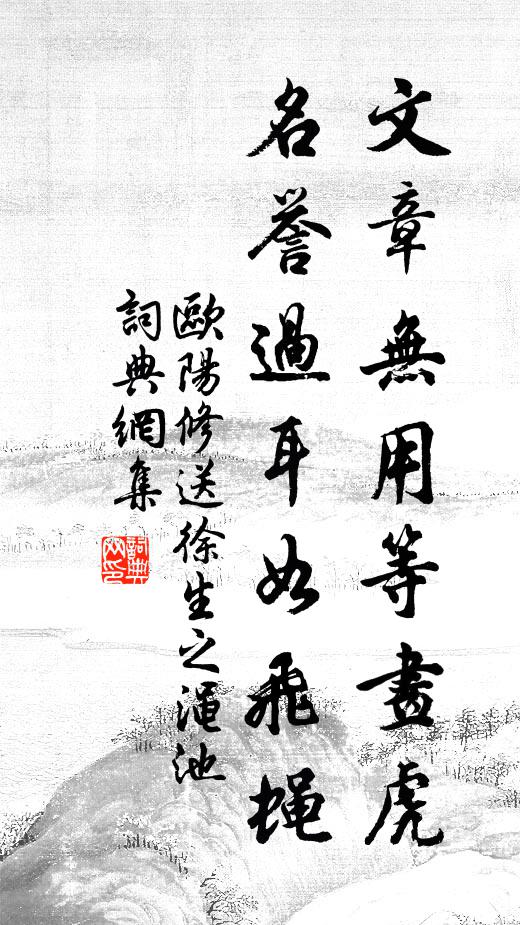 文章無用等畫虎
名譽過耳如飛蠅
歐陽修送徐生之澠池
詞典網集
詞典網印